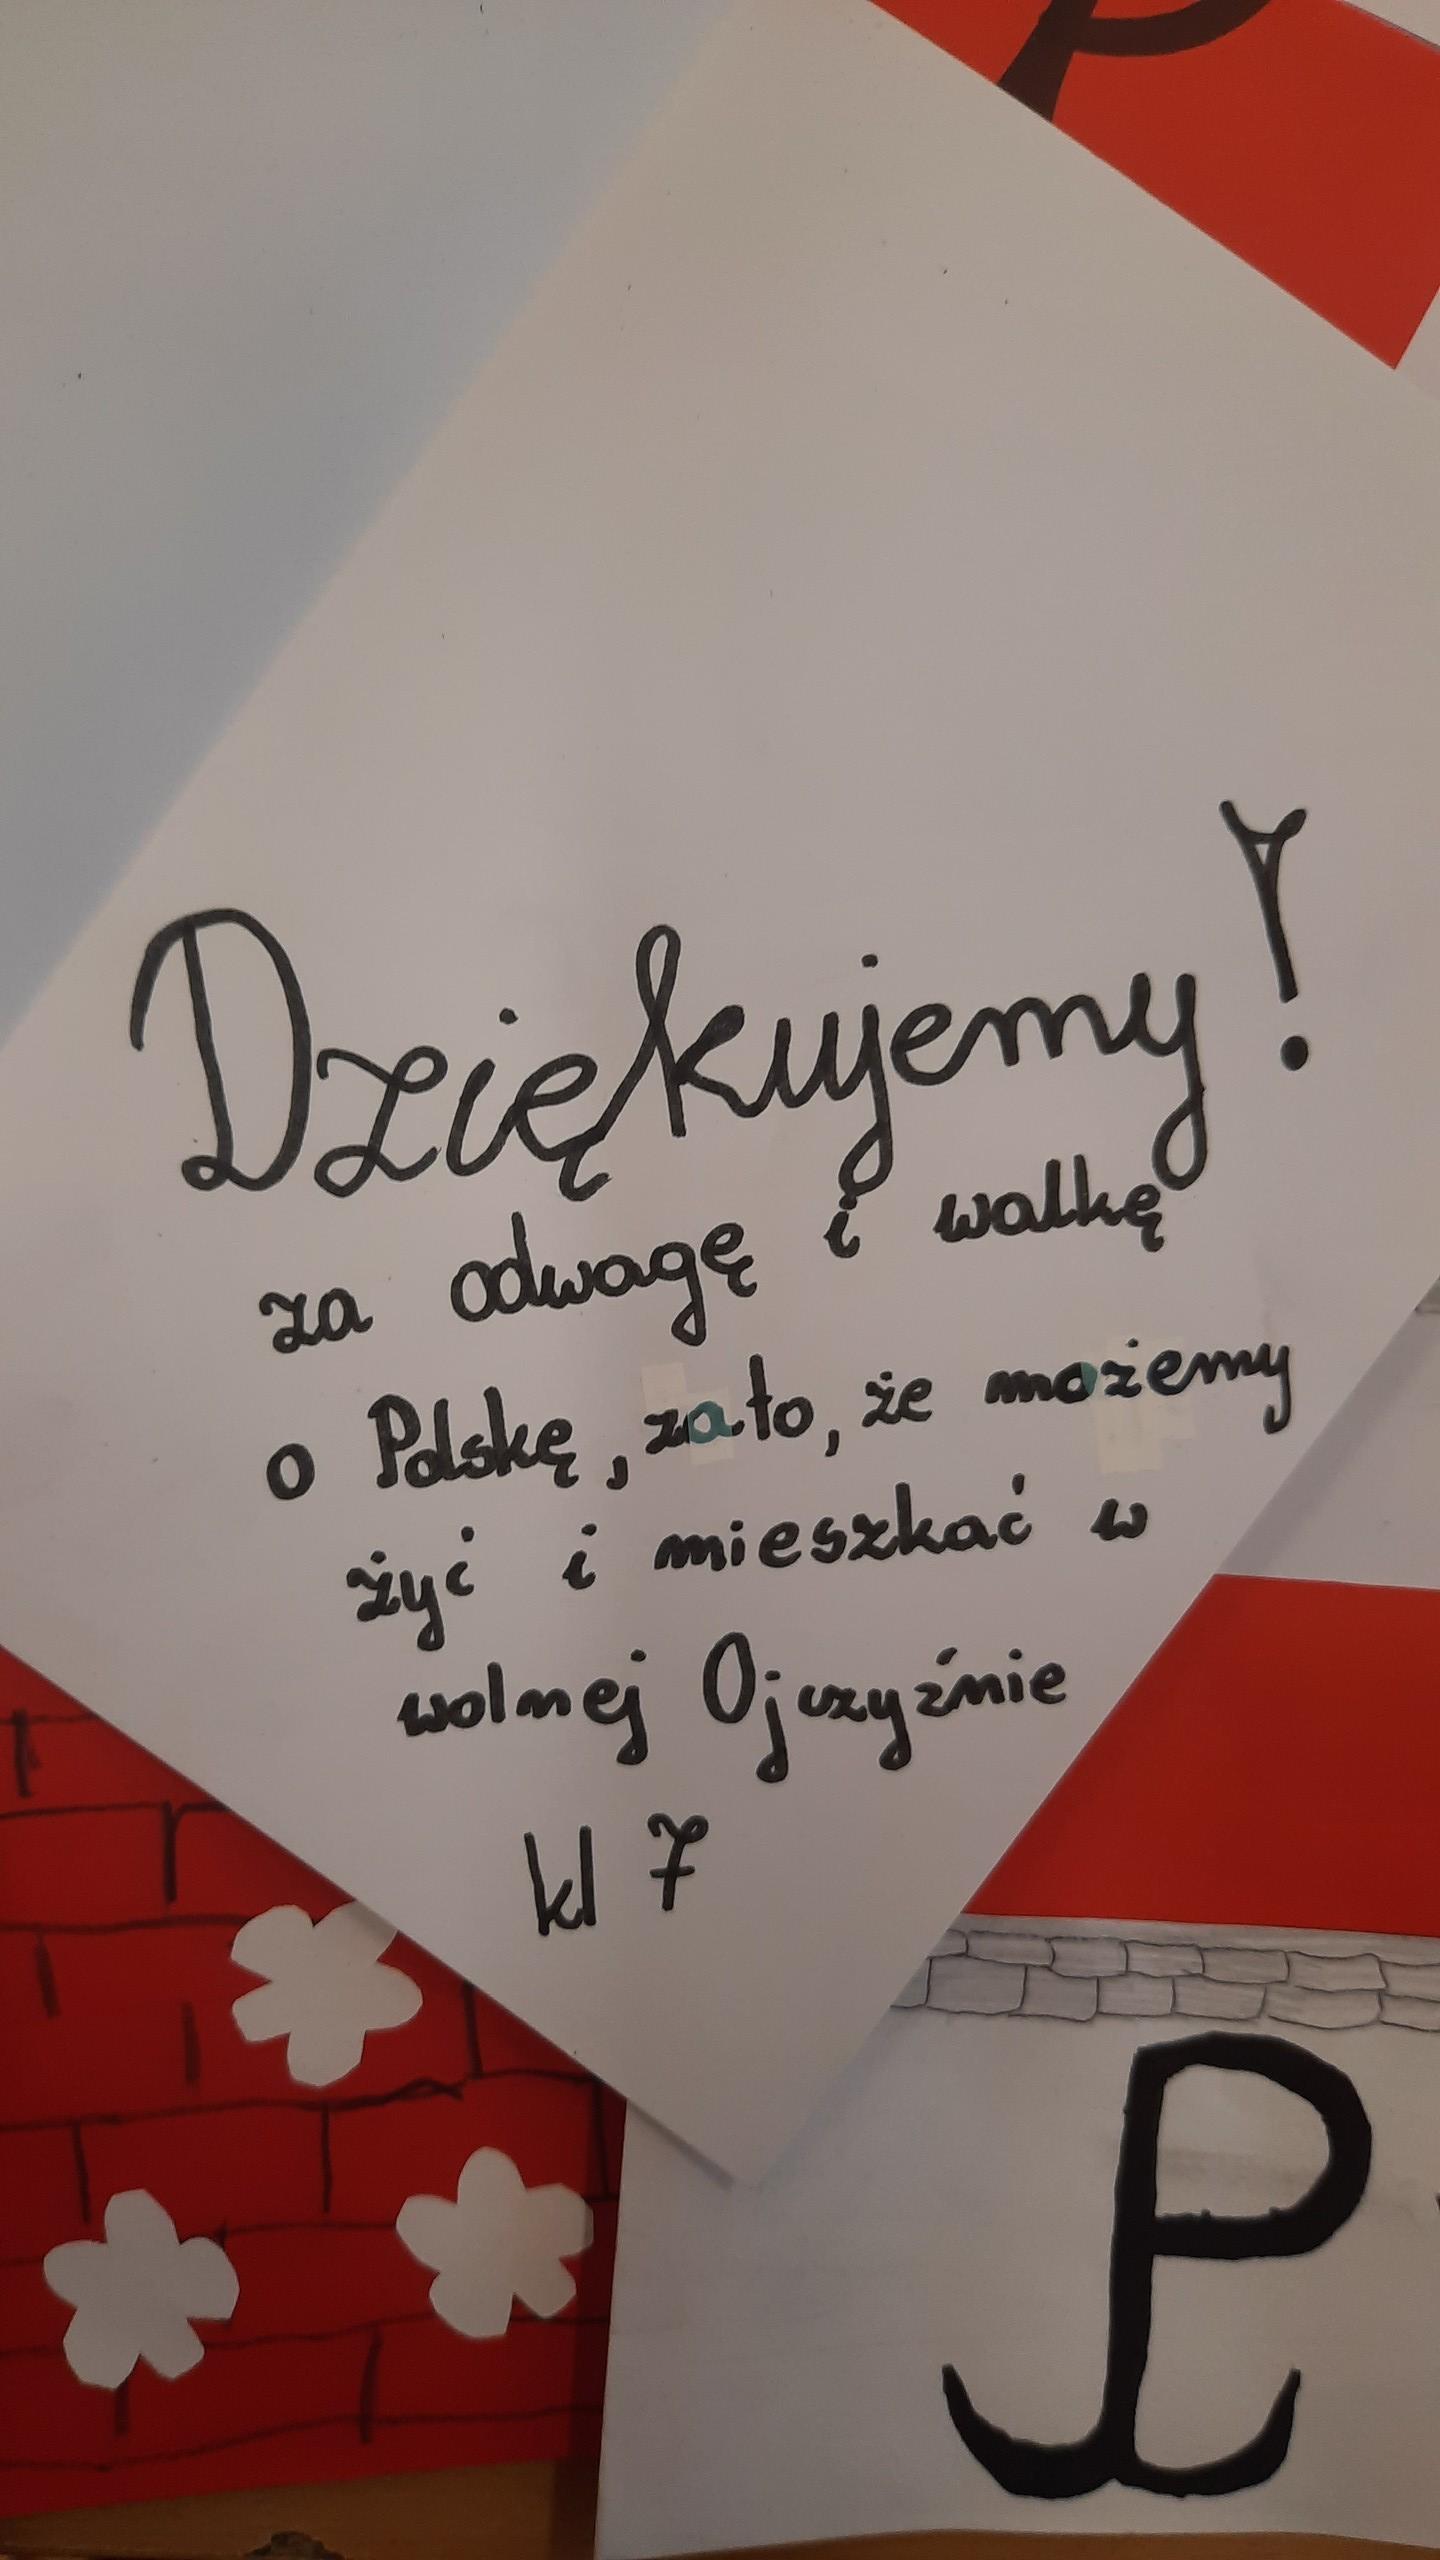 Dziękujemy!
za odwagę i walkę
o Polskę, za to, że możemy
żyć i mieszkać w
wolnej Ojczyźnie
kl 7